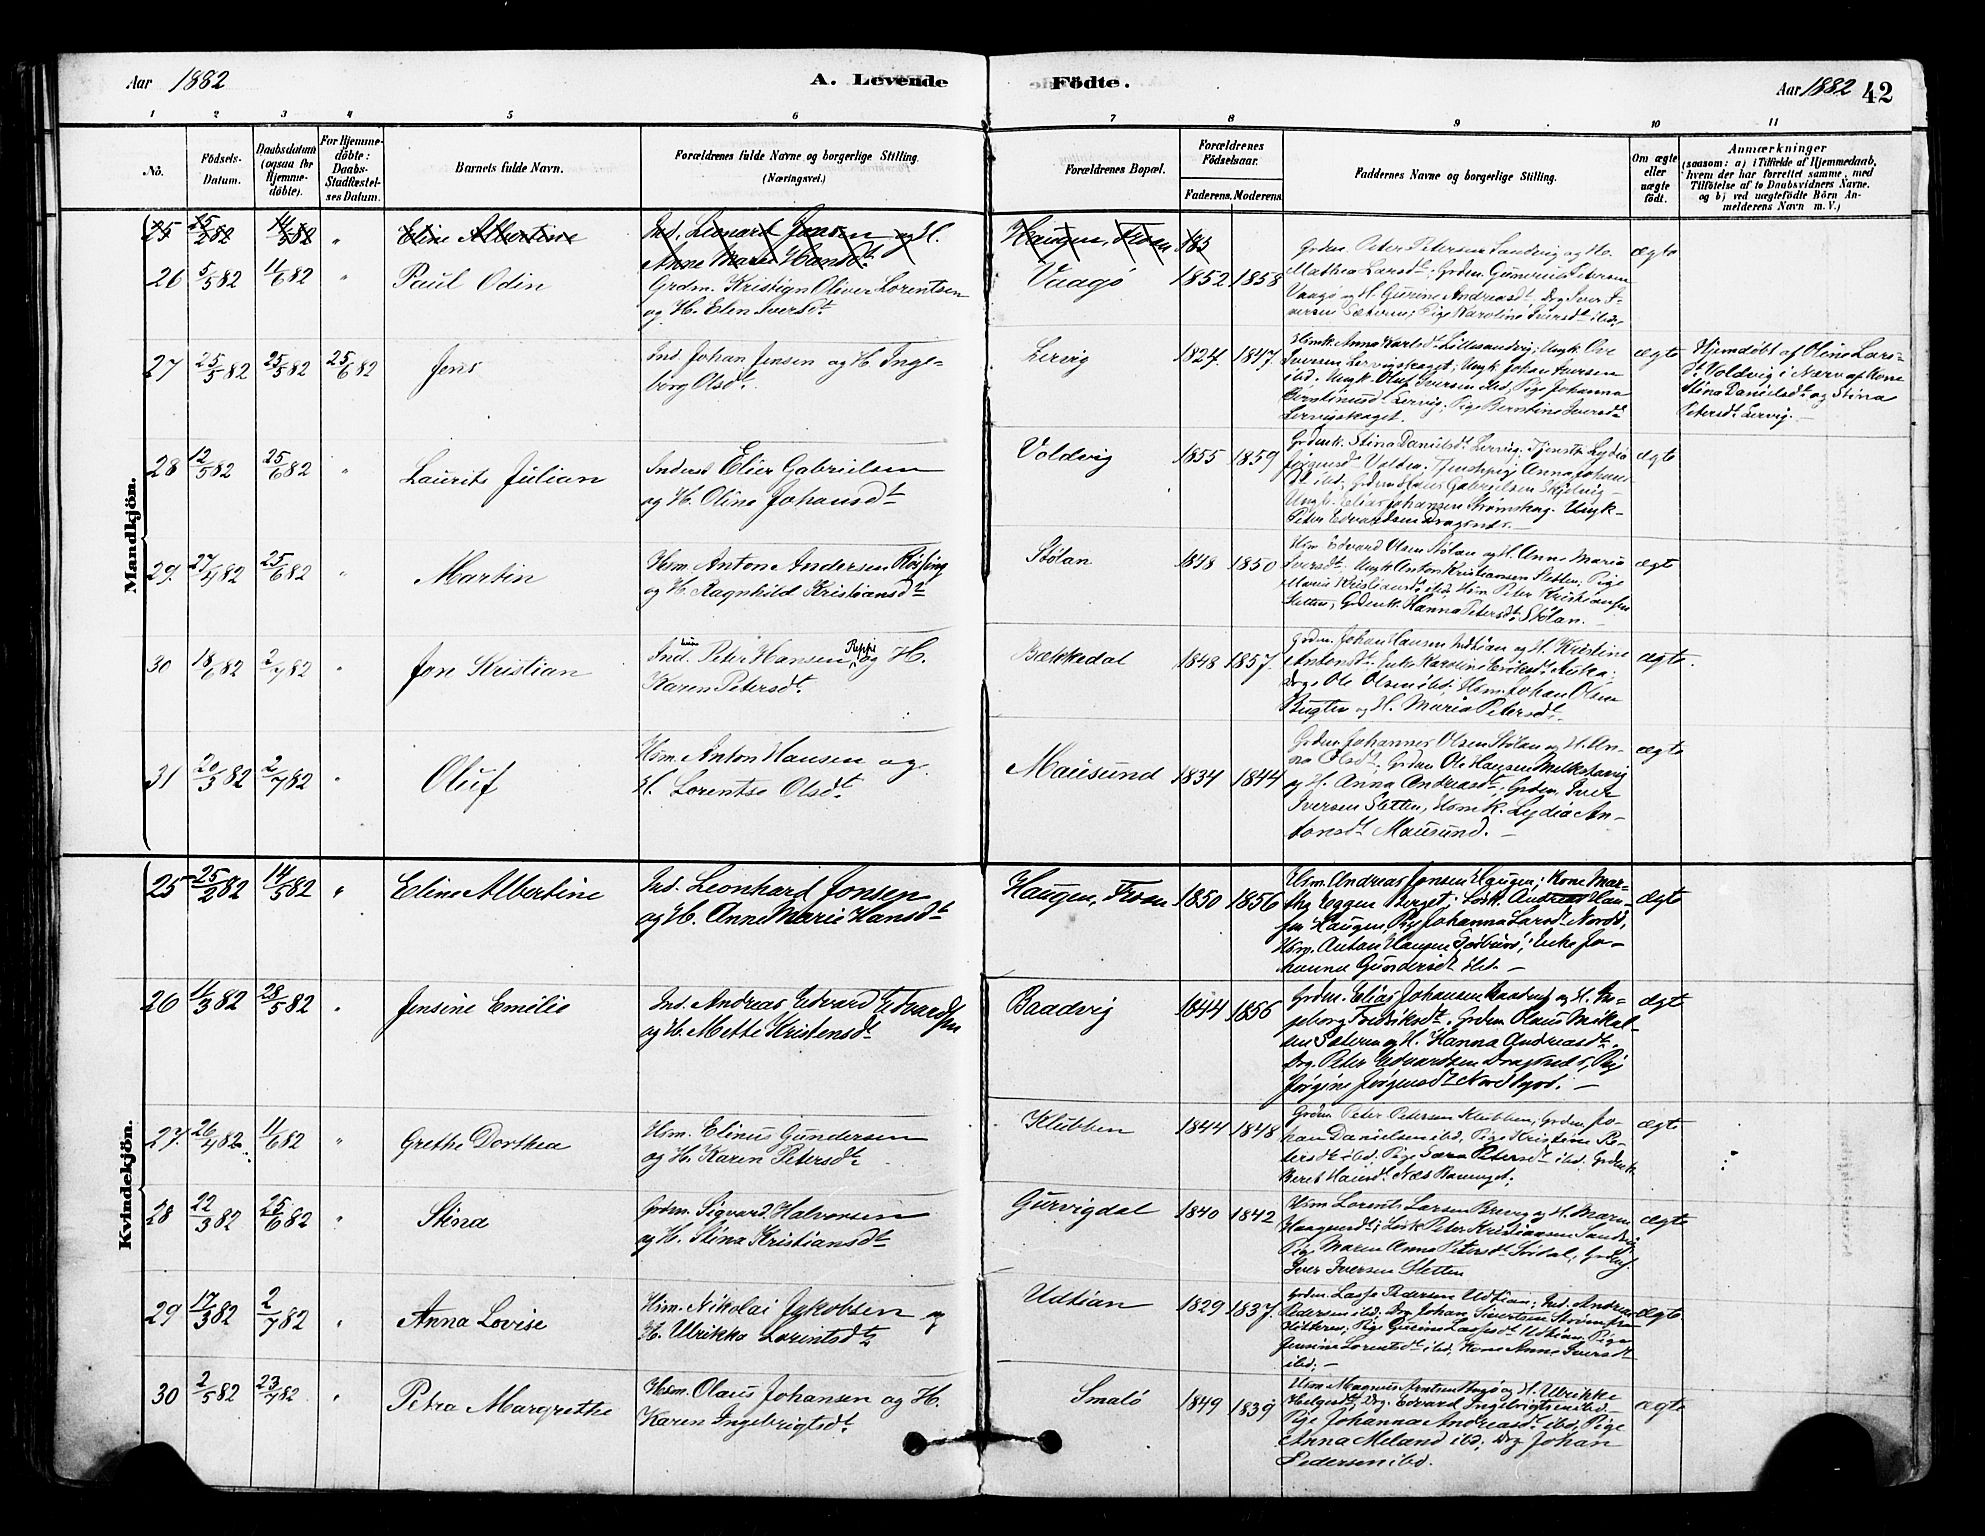 Aar 1882
A. Levende
Födte.
Aar 1882 42
1 2 3 4 5 6 7 8 9 10 11
No.
Födsels-
Datum.
Daabsdatum
(ogsaa for
Hjemme-
döbte).
For Hjemme-
döbte:
Daabs-
Stadfæstel-
ses Datum.
Barnets fulde Navn.
Forældrenes fulde Navne og borgerlige Stilling.
(Næringsvei.)
Forældrenes Bopæl.
Forældrenes
Födselsaar.
Faderens. Moderens.
Faddernes Navne og borgerlige Stilling.
Om ægte
eller
uægte
født.
Anmærkninger
(saasom: a) i Tilfælde af Hjemmedaab,
hvem der har forrettet samme, med
Tilföielse af to Daabsvidners Navne.
og b) ved uægtefödte Börn An-
melderens Navn m. V.)
Mandkjön.
25 25/2 82 14/5 82 " Eline Albertine
Ind. Leonard Jonsen og H.
Anne Marie Hansdt.
Haugen, Froan 185
26 5/5 82 11/6 82 " Paul Odin
Grdm. Kristian Oliver Lorentsen
og H. Elen Iversdt.
Vaagø 1852 1858
Grdm. Peter Petersen Sandvig og H.
Mathea Larsdt., Grdm. Gunerius Petersen
Vaagø og H. Gurine Andreasdt., Drg Iver I-
versen Sætern; Pige Karoline Iversdt. ibd.
ægte
27 25/5 82 25/5 82 25/6 82 Jens
Ind. Johan Jensen og H. Inge-
borg Olsdt.
Lervig 1824 1847
Hsmk. Anna Karlsdt. Lillesandvig; Ungk. Ove
Iversen Lervigskaget; Ungk. Johan Iversen
ibd. Ungk. Oluf Iversen ibd, Pige Johanna
Lervig; Pige Berntine Iversdt.
Lervigskaget.
ægte
Hjemdøbt af Oline Lars-
dt. Voldvig i Nærv. af Kone
Stina Danielsdt. og Stina
Petersdt. Lervig.
28 12/5 82 25/6 82 " Laurits Julian
Inderst Elier Gabrielsen
og H. Oline Johansdt.
Voldvig 1855 1859
Grdmk. Stina Danielsdt. Lervig; Tjenstp. Lydia
Jørgensdt. Valten. Tjenstepige Anna Johans-
dt. ibd, Grdm. Gabrielsen
Ungk. Elias Johansen Strømskag. Ungk-
Peter Edvardsen Dragsnes. —
ægte
29. 27/4 82 25/6 82 " Martin
Hsm. Anton Andersen Røsjing
og H. Ragnhild Kristiansdt.
Stølan 1848 1850
Hsm Edvard Olsen Stølan og H. Anne Maria
Iversdt. Ungk Anton Kristiansen Sletten; Pige
Maria Kristiansdt. ibd, Hsm Peter Kristiansen
Sletten, Grdmk. Hanna Petersdt. Stølan. —
ægt
30 18/6 82 2/7 82 " Jon Kristian
Ind. Peter Hansen, Reppe og H.
Karen Petersdt.
Bækkedal 1848 1857.
Grdm. Johan Hansen Indtian og H. Kristine
Antonsdt. Enke Karoline
Drg. Ole Olsen ibd. Hsm. Johan Olsen
Bugten og H. Maria Petersdt.
ægte.
31 20/3 82 2/7 82 " Oluf
Hsm. Anton Hansen og
H. Lorentse Olsdt.
Mausund 1834 1844
Grdm. Johannes Olsen Stølan og H. An-
na Olsdt., Grdm Ole Hansen Melkstavig
og H. Anna Andreasdt., Grdm. Iver
Iversen Sletten, Hsmk. Lydia An-
tonsdt. Mausund. —
ægte
Kvindekjön.
25 25/2 82 14/5 82 " Eline Albertine
Ind. Leonhard Jonsen
og H. Anne Marie Hansdt.
Haugen, Froan 1850 1856
Hsm. Andreas Jonsen Haugen; Kone Mar-
tha Eggen Berget; Løsk. Andreas Han-
sen Haugen, Pige Johanna Larsdt. Nordd,
Hsm. Anton Hansen Enke Jo-
hanna Gundersdt. ibd. —
ægte
26 11/3 82 28/5 82 " Jensine Emelie
Ind. Andreas Edvard Edvardsen
og H. Mette Kristensdt.
Baadvig 1844 1856
Grdm. Elias Johansen Baadvig og H. In-
geborg Fredriksdt., Grdm Olaus Mikal-
sen Sætern og H. Hanna Andreasdt.
Drg. Peter Edvardsen Dragsnes, Pig
Jørgine Jørgensdt. —
ægte
27. 26/4 82 11/6 82 " Grethe Dorthea
Hsm. Elinus Gundersen
og H. Karen Petersdt.
Klubben 1844 1848
Grdm Peter Petersen Klubben; Grdm. Jo-
han Danielsen ibd, Pige Kristine Pe-
tersdt. ibd. Pige Sara Petersdt. ibd. Grdmk
Beret Hansdt.
ægte
28 22/3 82 25/6 82 " Stina
Grdm. Sigvard Halvorsen
og H. Stina Kristiansdt.
Gurvigdal 1840 1842
Hsm Lorents Larsen Brevig og H. Maren
Haagensdt; Løsk Peter Kristiansen Sandvig
Pige Maren Anna Petersdt. Grdm.
Iver Iversen Sletten
ægte
29 17/3 82 2/7 82 " Anna Lovise
Hsm. Nikolai Jakobsen og
H. Ulrikke Lorentsdt.
Udtian 1829 1837.
Grdm. Lasse Pedersen Udtian; Ind. Andreas
Pedersen ibd; Drg Johan Sivertsen
Pige Gurine Larsdt. Udtian, Pige
Jensine Lorentsdt. ibd, Kone Anne Iversdt
ibd; —
ægte.
30 2/5 82 23/7 82 " Petra Margrethe
Hsm. Olaus Johansen og H.
Karen Ingebrigtsdt.
Smalø 1849 1839
Hsm. Magnus Arntsen og H. Ulrikke
Helgesdt., Drg. Edvard Ingebrigtsen ibd —
Pige Johanna Andreasdt. ibd, Pige
Anna Meland ibd, Drg Johan
Pedersen ibd.
ægte